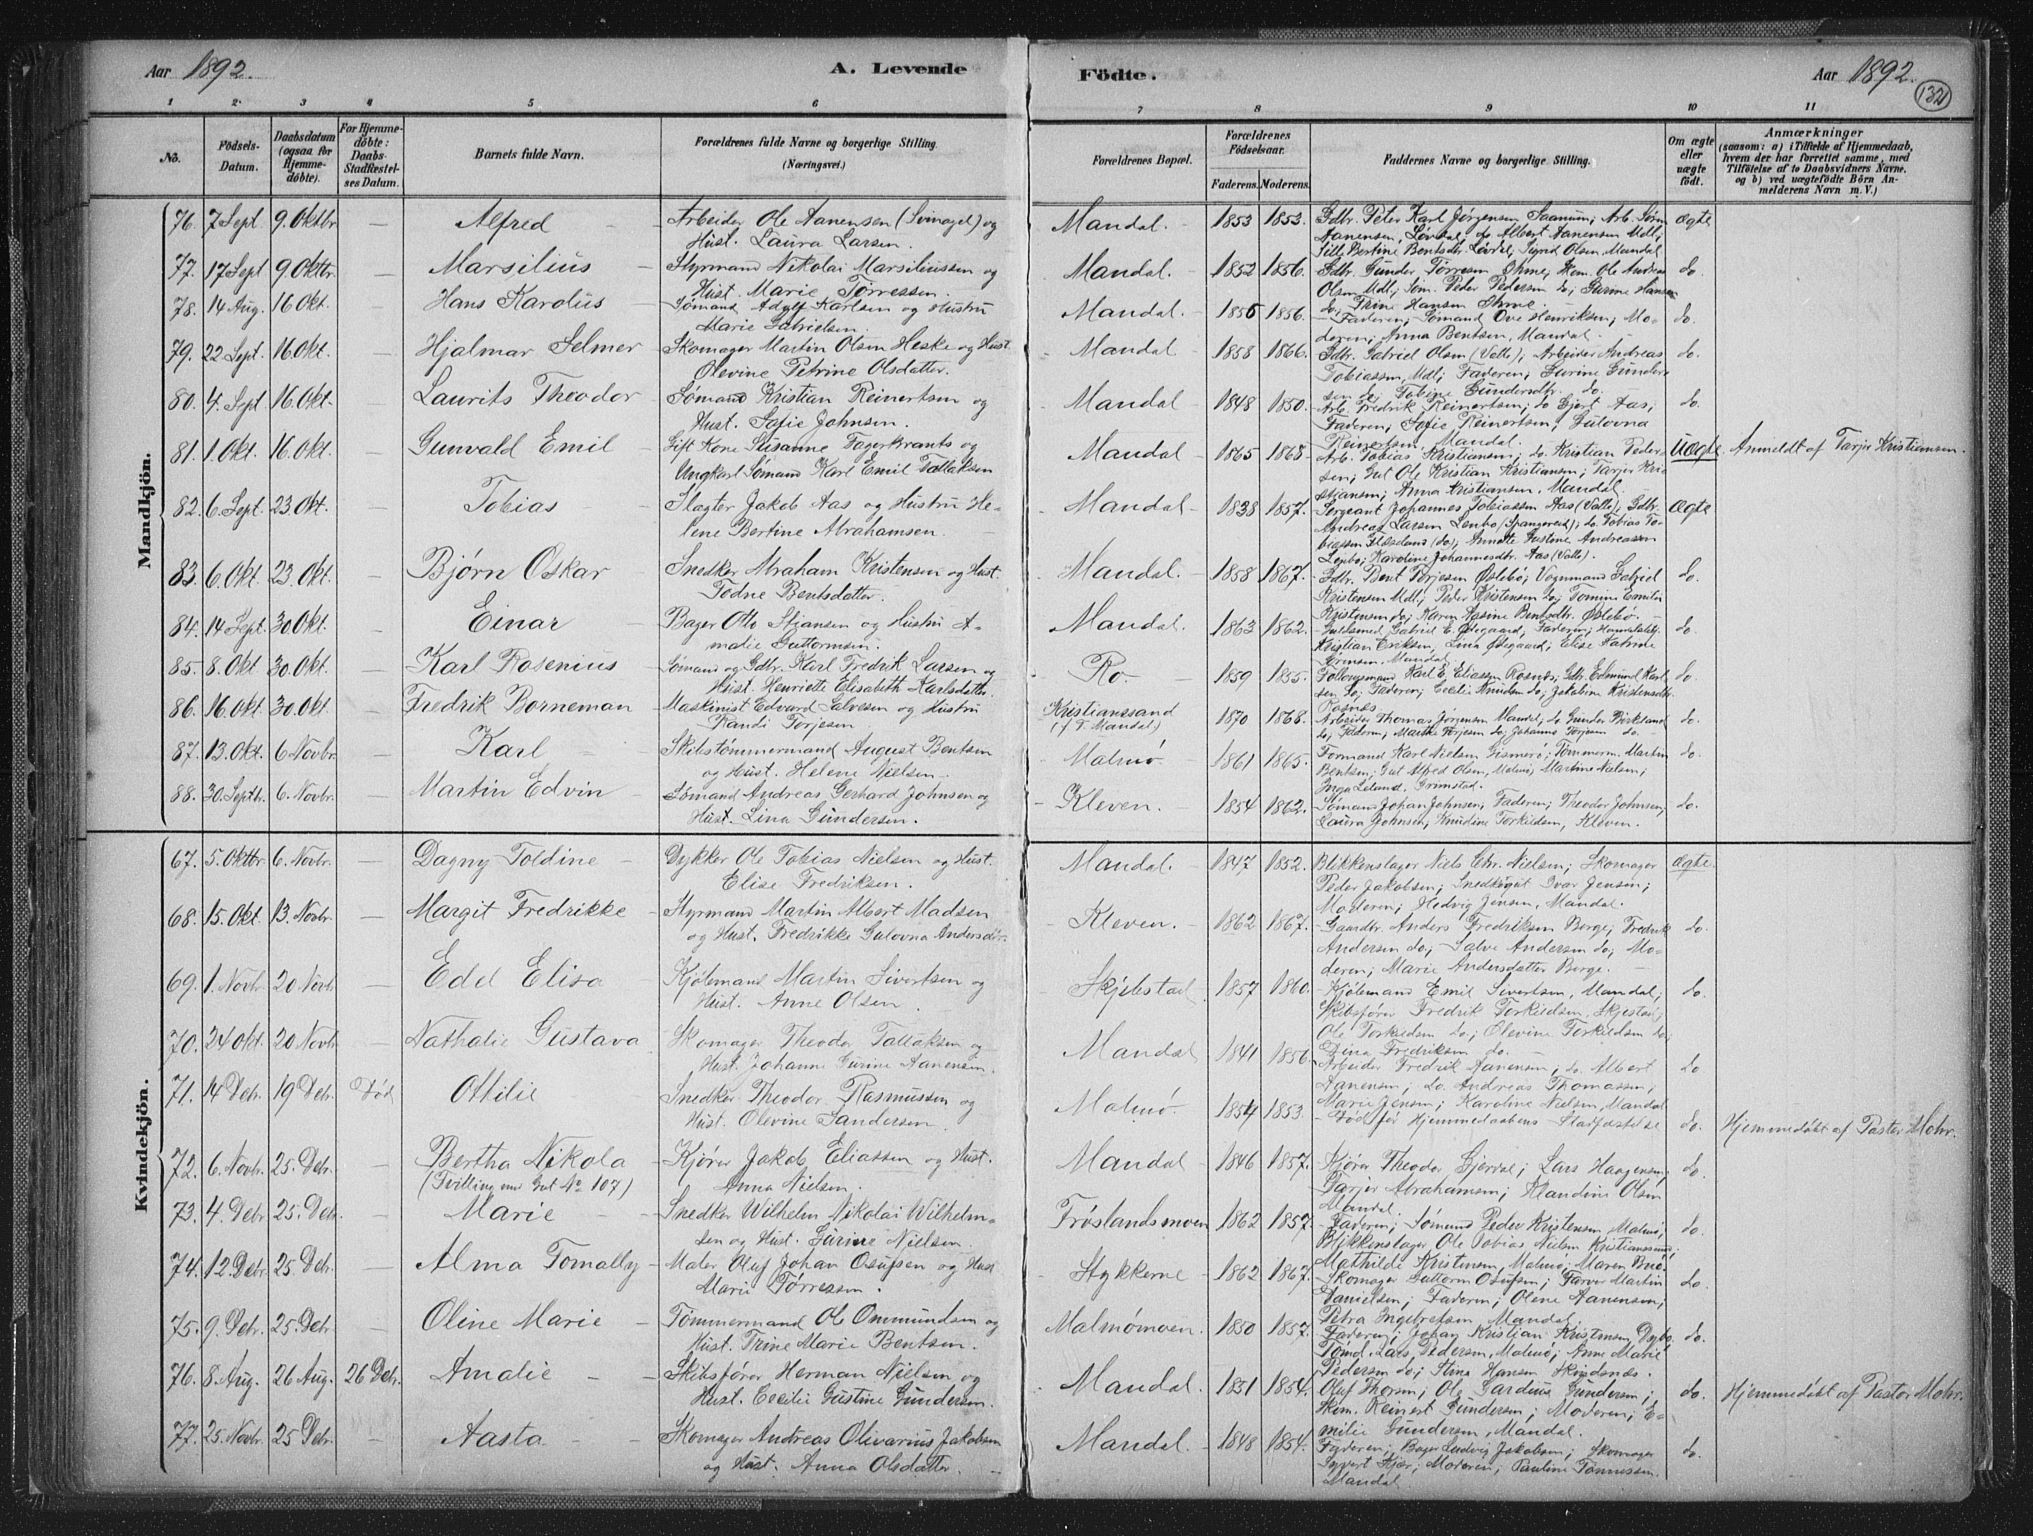 Aar 1892.
A. Levende Födte.
Aar 1892.
132
1 2 3 4 5 6 7 8 9 10 11
No.
Födsels-Datum.
Daabsdatum (ogsaa for Hjemmedöbte).
For Hjemmedöbte: Daabs-Stadfæstelses Datum.
Barnets fulde Navn.
Forældrenes fulde Navne og borgerlige Stilling. (Næringsvei.)
Forældrenes Bopæl.
Forældrenes Födselsaar.
Faderens. Moderens.
Faddernes Navne og borgerlige Stilling.
Om ægte eller uægte födt.
Anmærkninger (saasom: a) i Tilfælde af Hjemmedaab, hvem der har forrettet samme, med Tilföielse af to Daabsvidners Navne, og b) ved uægtefödte Börn Anmelderens Navn m. V.)
Mandkjön.
76. 7 Sept 9. Oktbr. — Alfred — Arbeider Ole Aanensen (Svinagel) og Hust. Laura Larsen. Mandal. 1853 1853. Gdbr. Peter Karl Jørgensen Saanum; Arb. Sørn Aanensen, Løvdal, do Albert Aanensen Mdl; Sille Bertine Bentsdtr Løvdal, Sigrid Olsen, Mandal ægte
77. 17 Sept 9 Oktbr. — Marsilius — Styrmand Nikolai Marsiliussen og Hust. Marie Tørressen. Mandal. 1852 1856. Gdbr. Gunder Tørresen Ihme, Skom. Ole Andreas Olsen Mdl; Søm. Peder Pedersen do; Surine Hansen do, Trine Hansen Ihme. do.
78. 14 Aug. 16 Okt. — Hans Karolius — Sømand Adolf Karlsen og Hustru Marie Gabrielsen. Mandal. 1855 1856. Faderen; Sømand Ove Henriksen; Moderen; Anna Bentsen, Mandal. do.
79. 22 Sept. 16 Okt. — Hjalmar Selmer — Skomager Martin Olsen Heske og Hust. Olevine Petrine Olsdatter. Mandal 1858 1866. Gdbr. Gabriel Olsen (Valle); Arbeider Andreas Tobiassen, Mdl; Faderen; Surine Gundersen do; Tobine Gundersdtr. do. do.
80. 4. Sept 16. Okt. — Laurits Theodor — Sømand Kristian Reinertsen og Hust. Sofie Johnsen. Mandal 1848 1850. Arb. Fredrik Reinertsen; do Gjert Aas; Faderen; Sofie Reinertsen, Gulovna Reinertsen, Mandal. do.
81. 1. Okt. 16 Okt. — Gunvald Emil — Gift Kone Susanne Fagerkrants og Ungkarl Sømand Karl Emil Tallaksen Mandal 1865 1868. Arb. Tobias Kristiansen; do Kristian Pedersen; Gut Ole Kristian Kristiansen; Tarjer Kristiansen; Anna Kristiansen, Mandal. Uægte. Anmeldt af Tarjer Kristiansen.
82. 6. Sept. 23 Okt. — Tobias — Slagter Jakob Aas og Hustru Helene Bertine Abrahamsen. Mandal 1838 1857. Sergeant Johannes Tobiassen Aas (Valle); Gdbr. Andreas Larsen Lenbo (Spangereid); do Tobias Tobiassen (do); Annette Gustine Andreassen Lenbo; Karoline Johannesdtr. Aas (Valle). Ægte
83. 6. Okt. 23. Okt. — Bjørn Oskar — Snedker Abraham Kristensen og Hust. Todne Bentsdatter. Mandal. 1858 1867. Gdbr. Bent Torjesen Østebø; Vognmand Gabriel Kristensen Mdl; Peder Kristensen do; Tomine Emilie Kristensen do; Karen Assine Bentsdtr. Østebø. do.
84. 14 Sept. 30. Okt. — Einar — Bager Otto Stiansen og Hustru Amalie Guttormsen. Mandal. 1863 1862. Guldsmed Gabriel E. Ødegaard, Faderen; Handelsbetj. Kristian Eriksen, Lina Ødegaard; Elise Katrine Sørensen, Mandal. do.
85. 8. Okt. 30. Okt. — Karl Rosenius — Sømand og Gdbr. Karl Fredrik Larsen og Hust. Henriette Elisabeth Karlsdatter. Ro. 1859 1855. Karl E. Eliassen Rosnes; Gdbr. Edmund Karlsen do; Faderen; Cecilie Knudsen do; Jakobine Kristensdtr. Rosnes. do.
86. 16. Okt. 30. Okt. — Fredrik Borneman — Maskinist Edvard Salvesen og Hustru Randi Torjesen Kristianssand (f. T. Mandal) 1870 1868. Arbeider Thomas Jørgensen Mandal, do Gunder Birkeland do, Faderen, Marthe Torjesen do; Johanne Torjesen do. do.
87. 13. Okt. 6 Novbr. — Karl — Skibstømmermand August Bentsen og Hust. Helene Nielsen. Malmø. 1861 1865. Formand Karl Nielsen Gismerø; Tømmerm. Martin Bentsen; Gut Alfred Olsen, Malmø; Martine Nielsen; Inga Leland, Grimstad. do.
88. 30. Septbr. 6. Novbr. — Martin Edvin — Sømand Andreas Gerhard Johnsen og Hust. Lina Gundersen. Kleven. 1854 1862. Sømand Johan Johnsen; Faderen; Theodor Johnsen; Laura Johnsen, Knudine Torkildsen, Kleven. do.
Kvindekjön.
67. 5. Oktbr. 6. Novbr. — Dagny Toldine — Dykker Ole Tobias Nielsen og Hust. Elise Fredriksen. Mandal. 1847 1852. Blikkenslager Niels Chr. Nielsen; Skomager Peder Jakobsen; Snedkergut Ivar Jensen; Moderen; Hedvig Jensen, Mandal. ægte.
68. 15. Okt. 13. Novbr. — Margit Fredrikke — Styrmand Martin Albert Madsen og Hust. Fredrikke Gulovna Andersdtr. Kleven. 1862 1867. Gaardbr. Anders Fredriksen Berge; Fredrik Andersen do; Salve Andersen do; Moderen; Marie Andersdatter Berge. do.
69. 1. Novbr. 20 Novbr. — Edd Elisa — Kjøbmand Martin Sivertsen og Hust. Anne Olsen. Skjebstad. 1857 1860. Kjøbmand Emil Sivertsen, Mandal; Skibsfører Fredrik Torkildsen, Skjestad; Ole Torkildsen do; Olevine Torkildsen do; Dina Fredriksen do. do.
70. 24 Okt. 20 Novbr. — Nathalie Gustava — Skomager Theodor Tallaksen og Hust. Johanne Gurine Aanensen. Mandal 1841 1856 Arbeider Fredrik Aanensen, do. Albert Aanensen; do. Andreas Thomassen; Marie Jensen; Karoline Nielsen, Mandal do
71. 14 Debr. 19 Debr. Død Ottilie — Snedker Theodor Rasmussen og Hust. Olevine Sandersen. Malmø. 1854 1853. Død før Hjemmedaabens Stadfæstelse do. Hjemmedøbt af Pastor Mohr.
72. 6. Novbr. 25. Debr. — Bertha Nikola (Tvilling med Gut № 107) Kjører Jakob Eliassen og Hust. Anna Nielsen. Mandal 1846 1857. Kjører Theodor Gjerdal; Lars Haagensen; Tarjer Abrahamsen; Klaudine Olsen Mandal. do.
73. 4. Debr. 25. Debr. — Marie — Snedker Wilhelm Nikolai Wilhelmsen og Hust. Gurine Nielsen. Frøslandsmoen 1862 1857. Faderen; Sømand Peder Kristensen Malmø; Blikkenslager Ole Tobias Nielsen Kristianssund; Mathilde Kristensen, Malmø; Maren Brie. do.
74. 12 Debr. 25. Debr. — Alma Tomally Maler Oluf Johan Osufsen og Hust Marie Tørressen. Stykkerne 1862 1867. Skomager Guttorm Osufsen; Farver Martin Danielsen; Faderen; Olene Aanensen; Petra Ingebretsen Mandal. do.
75. 9. Debr. 25. Debr. — Oline Marie — Tømmermand Ole Ommundsen og Hust. Trine Marie Bentsen. Malmømoen. 1850 1857. Faderen; Johan Kristian Kristensen Dybo, Tømd. Lars Pedersen, Malmø; Anne Marie Pedersen do; Stina Hansen Skindsnes. do.
76. 8. Aug. 26 Aug. 26 Debr. Amalie — Skibsfører Herman Nielsen og Hust. Cecilie Gustine Gundersen. Mandal. 1851 1854. Oluf Thorsen; Ole Gardius Gundersen; Skom. Reinert Gundersen; Moderen; Emilie Gundersen, Mandal. do. Hjemmedøbt af Pastor Mohr.
77. 25. Novbr. 25 Debr. — Aasta — Skomager Andreas Olivarius Jakobsen og Hust. Anna Olsdatter. Mandal. 1848 1854. Faderen; Bager Ludvig Jakobsen; Skomager Syvert Hjær; Moderen; Pauline Tønnessen. Mandal do.